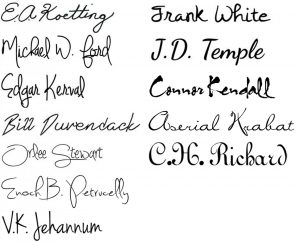 E.A. Koetting
Michael W. Ford
Edgar Kerval
Bill Duvendack
Orlee Stewart
Enoch B. Petrucelly
V.K. Jehannum
Frank White
J.D. Temple
Connor Kendall
Asenil Krabat
C.H. Richard